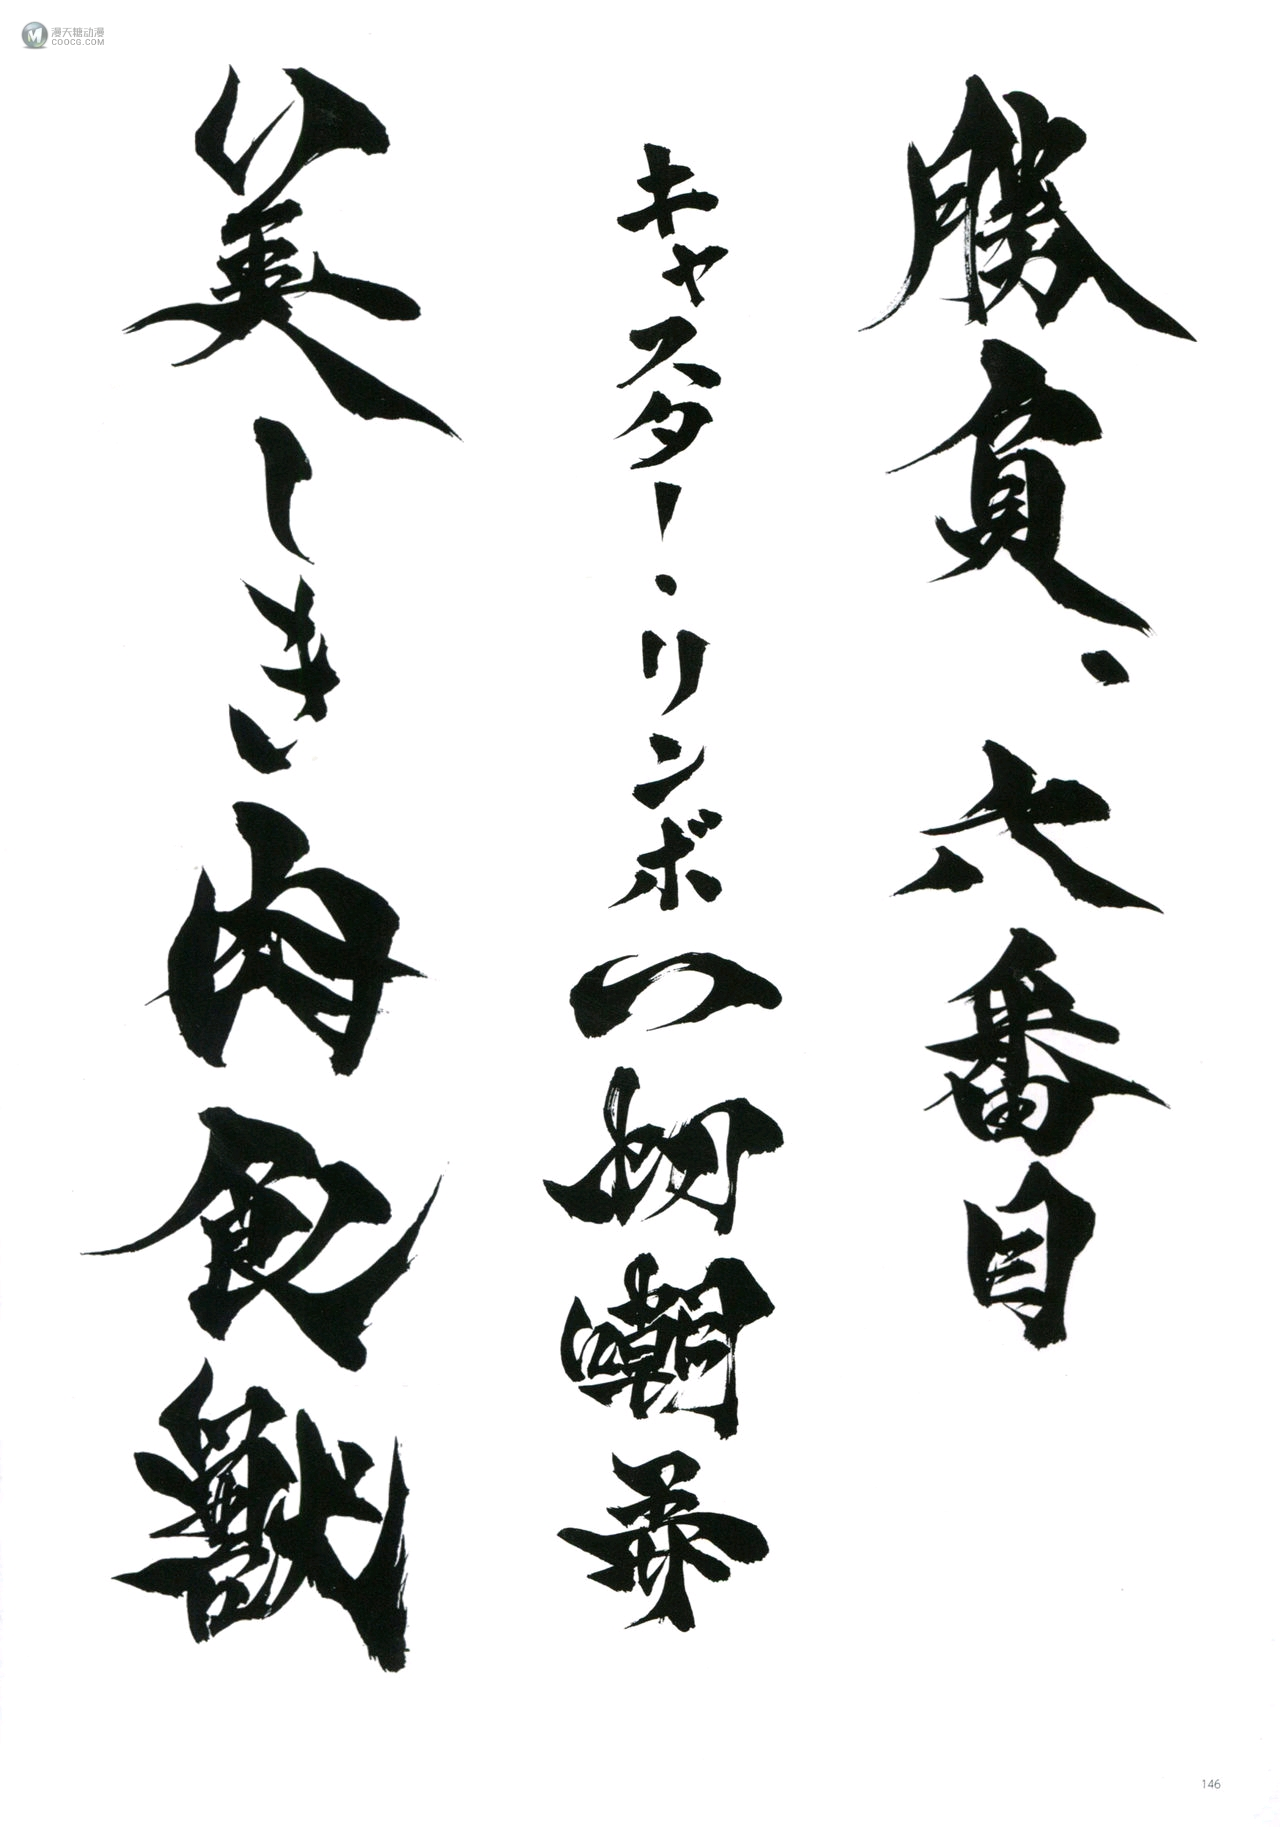 漫天糖动漫
COOCG.COM
勝負、六番目
キャスター・リンボ
一切嘲弄
美しき肉食獣
146